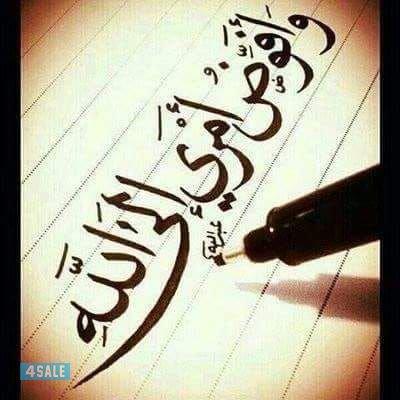 وَأُفَوِّضُ أَمْرِي إِلَى اللَّهِ
4SALE